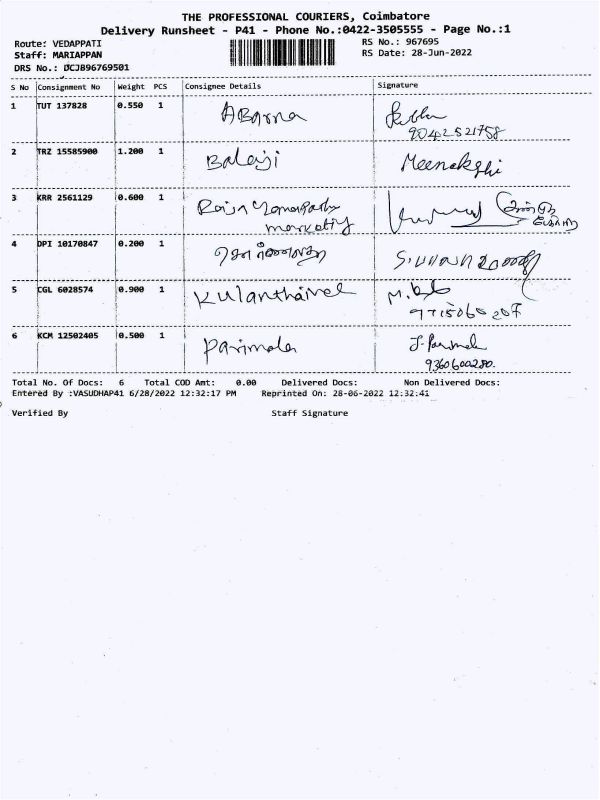 THE PROFESSIONAL COURIERS, Coimbatore
Delivery Runsheet - P41 - Phone No.:0422-3505555 - Page No.:1
Route: VEDAPPATI RS No.: 967695
Staff: MARIAPPAN RS Date: 28-Jun-2022
DRS No.: DCJB96769501
S No Consignment No Weight PCS Consignee Details Signature
1 TUT 137828 0.550 1 ABarna
9042521758
2 TRZ 15585900 1.200 1 Balaji Meenakshi
3 KRR 2561129 0.600 1 Raja
marketing
4 DPI 10170847 0.200 1
5 CGL 6028574 0.900 1 Kulanthaivel
9715060207
6 KCM 12502405 0.500 1 Parimala J. Parimala
9360600280.
Total No. Of Docs: 6 Total COD Amt: 0.00 Delivered Docs: Non Delivered Docs:
Entered By :VASUDHAP41 6/28/2022 12:32:17 PM Reprinted On: 28-06-2022 12:32:41
Verified By Staff Signature